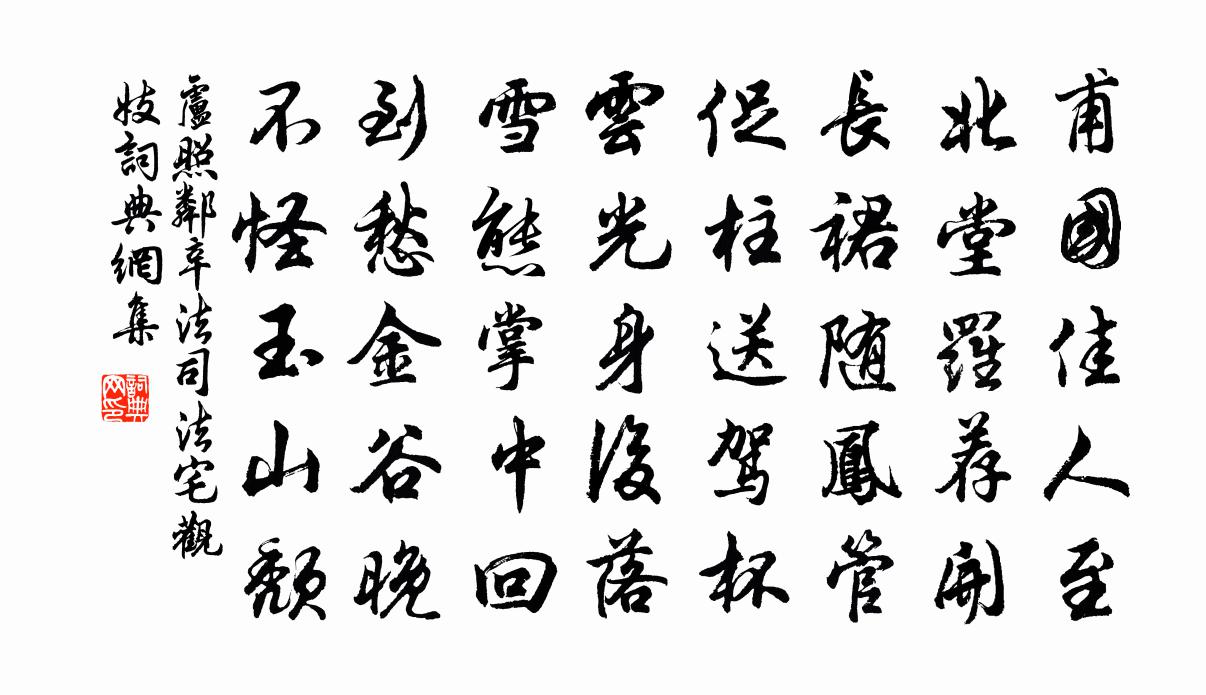 南國佳人至
北堂羅荐開
長裙随鳳管
促柱送駕杯
雲光身後落
雪態掌中回
到愁金谷晚
不怪玉山頹
盧照鄰辛法司法宅觀
妓詞典網集
詞典
网印